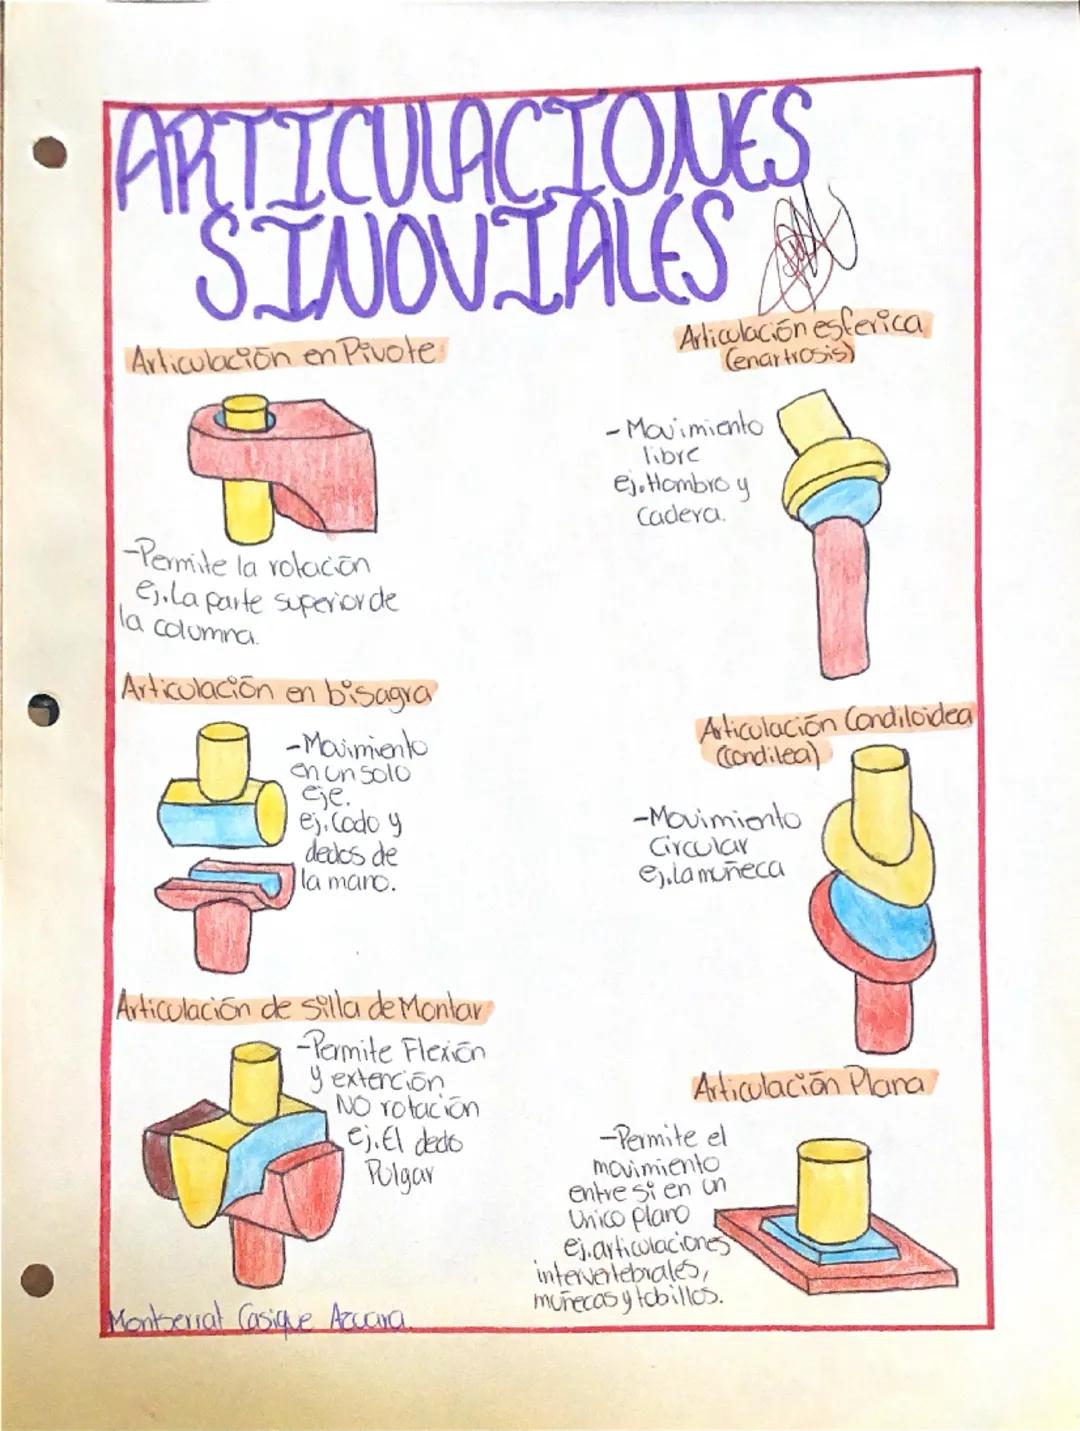 ARTICULACIONES
SINOVIALES
Articulación en Pivote
-Permite la rotación
ej. La parte superior de
la columna.
Articulación en bisagra
-Movimiento
en un solo
eje.
ej. Codo y
dedos de
la mano.
Articulación de silla de Montar
-Permite Flexión
y extención
NO rotación
ej. El dedo
Pulgar
Articulación esferica
(enartrosis)
-Movimiento
libre
ej. Hombro y
Cadera.
Articulación Condiloidea
(Condilea)
-Movimiento
Circular
ej. La muñeca
Articulación Plana
-Permite el
movimiento
entre si en un
Unico plano
ej. articulaciones
intervertebrales,
muñecas y tobillos.
Montserrat Casique Azuara